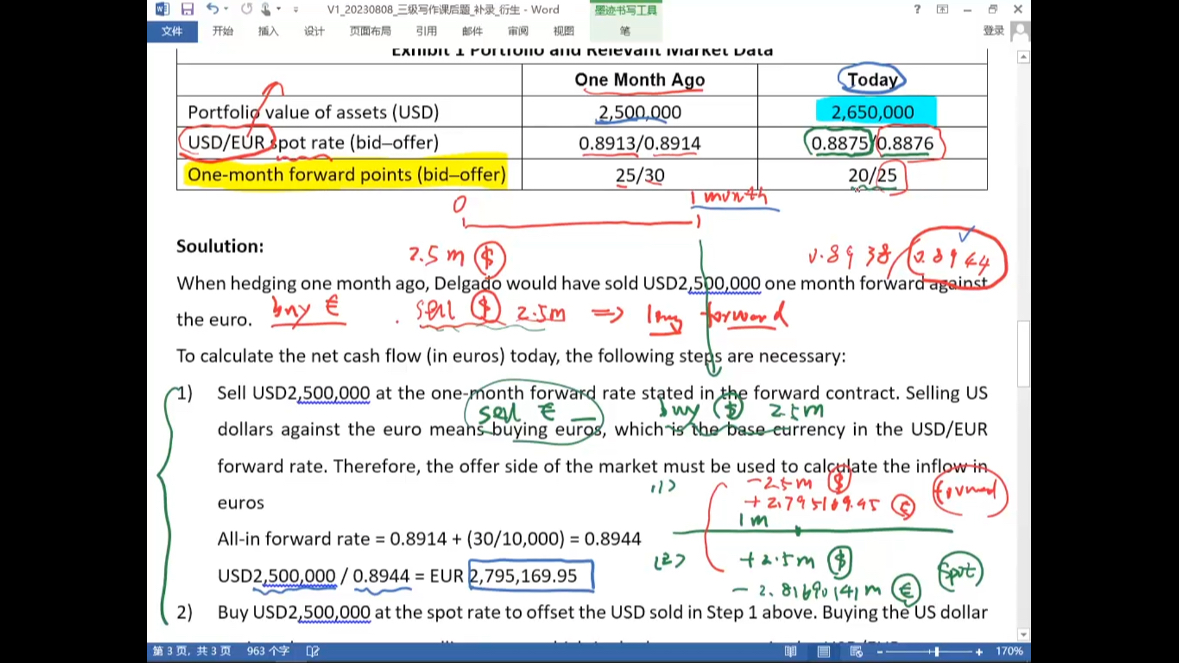 V1_20230808_三级写作课后题_补录_衍生 - Word
墨迹书写工具
文件 开始 插入 设计 页面布局 引用 邮件 审阅 视图 笔 登录
Exhibit 1 Portfolio and Relevant Market Data
One Month Ago Today
Portfolio value of assets (USD) 2,500,000 2,650,000
USD/EUR spot rate (bid–offer) 0.8913/0.8914 0.8875/0.8876
One-month forward points (bid–offer) 25/30 20/25
0 1 month
Soulution:
2.5 m $ 0.8938/0.8944
When hedging one month ago, Delgado would have sold USD2,500,000 one month forward against
the euro. buy € sell $ 2.5m => long forward
To calculate the net cash flow (in euros) today, the following steps are necessary:
1) Sell USD2,500,000 at the one-month forward rate stated in the forward contract. Selling US
sell € buy $ 2.5m
dollars against the euro means buying euros, which is the base currency in the USD/EUR
forward rate. Therefore, the offer side of the market must be used to calculate the inflow in
(1) -2.5m $ forward
euros
+2.795169.95 €
1 m
All-in forward rate = 0.8914 + (30/10,000) = 0.8944
(2) +2.5m $ Spot
USD2,500,000 / 0.8944 = EUR 2,795,169.95
- 2.81690141 m €
2) Buy USD2,500,000 at the spot rate to offset the USD sold in Step 1 above. Buying the US dollar
第 3 页, 共 3 页 963 个字 170%